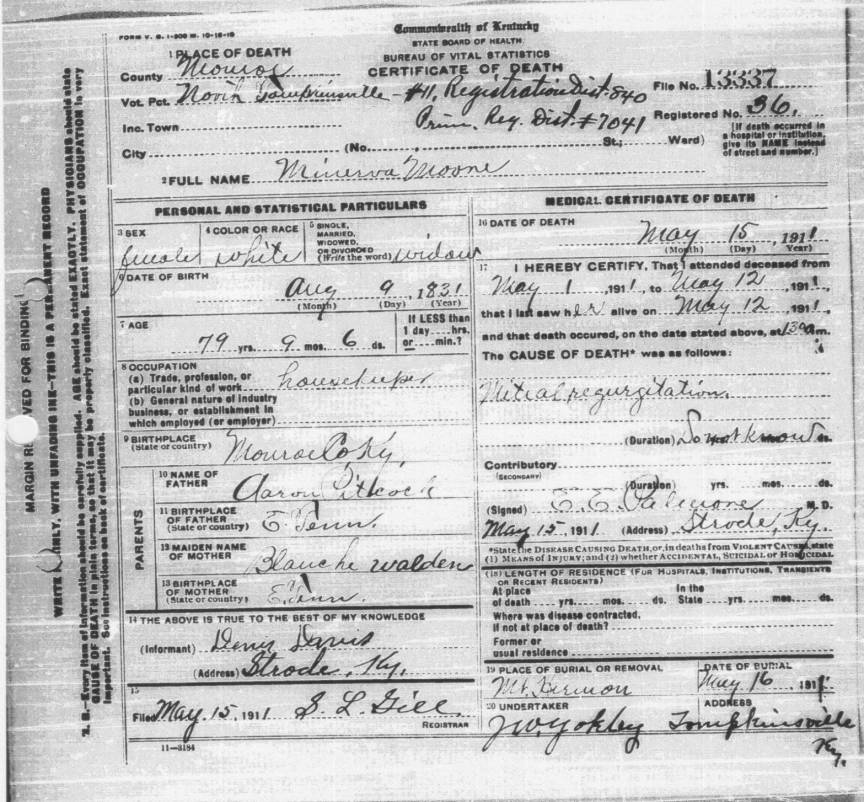 FORM V. S. 1-300 M. 10-16-10
Commonwealth of Kentucky
STATE BOARD OF HEALTH
BUREAU OF VITAL STATISTICS
CERTIFICATE OF DEATH
1 PLACE OF DEATH
County Monroe
Vot. Pct. North Tompkinsville - #11, Registration Dist. 840
File No. 13337
Inc. Town Prim. Reg. Dist. #7041
Registered No. 36.
City (No. St.; Ward)
[If death occurred in a hospital or institution, give its NAME instead of street and number.]
2 FULL NAME Minerva Moore
PERSONAL AND STATISTICAL PARTICULARS
3 SEX female
4 COLOR OR RACE white
5 SINGLE, MARRIED, WIDOWED, OR DIVORCED (Write the word) widow
6 DATE OF BIRTH
Aug 9, 1831
(Month) (Day) (Year)
7 AGE
79 yrs. 9 mos. 6 ds.
If LESS than 1 day hrs. or min.?
8 OCCUPATION
(a) Trade, profession, or particular kind of work housekeeper
(b) General nature of industry business, or establishment in which employed (or employer)
9 BIRTHPLACE (State or country) Monroe Co Ky,
PARENTS
10 NAME OF FATHER Aaron Pitcock
11 BIRTHPLACE OF FATHER (State or country) E. Tenn.
12 MAIDEN NAME OF MOTHER Blanche Walden
13 BIRTHPLACE OF MOTHER (State or country) E. Tenn.
14 THE ABOVE IS TRUE TO THE BEST OF MY KNOWLEDGE
(Informant) Davis
(Address) Strode, Ky.
15
Filed May. 15, 1911 S. L. Gill
REGISTRAR
11-3184
MEDICAL CERTIFICATE OF DEATH
16 DATE OF DEATH
May 15, 1911
(Month) (Day) (Year)
17 I HEREBY CERTIFY, That I attended deceased from
May 1, 1911, to May 12, 1911,
that I last saw her alive on May 12, 1911,
and that death occured, on the date stated above, at 130 am.
The CAUSE OF DEATH* was as follows:
Mitral regurgitation.
(Duration) Do not know ds.
Contributory
(SECONDARY)
(Duration) yrs. mos. ds.
(Signed) E. E. Palmore M. D.
May 15, 1911 (Address) Strode, Ky.
*State the DISEASE CAUSING DEATH, or, in deaths from VIOLENT CAUSES, state
(1) MEANS OF INJURY; and (2) whether ACCIDENTAL, SUICIDAL OR HOMICIDAL
(18) LENGTH OF RESIDENCE (FOR HOSPITALS, INSTITUTIONS, TRANSIENTS OR RECENT RESIDENTS)
At place of death yrs. mos. ds. In the State yrs. mos. ds.
Where was disease contracted, if not at place of death?
Former or usual residence
19 PLACE OF BURIAL OR REMOVAL Mt. Hermon
DATE OF BURIAL May 16, 1911
20 UNDERTAKER J W Yokley
ADDRESS Tompkinsville Ky.
MARGIN RESERVED FOR BINDING
WRITE PLAINLY, WITH UNFADING INK—THIS IS A PERMANENT RECORD
N. B.—Every item of information should be carefully supplied. AGE should be stated EXACTLY. PHYSICIANS should state
CAUSE OF DEATH in plain terms, so that it may be properly classified. Exact statement of OCCUPATION is very
important. See instructions on back of certificate.